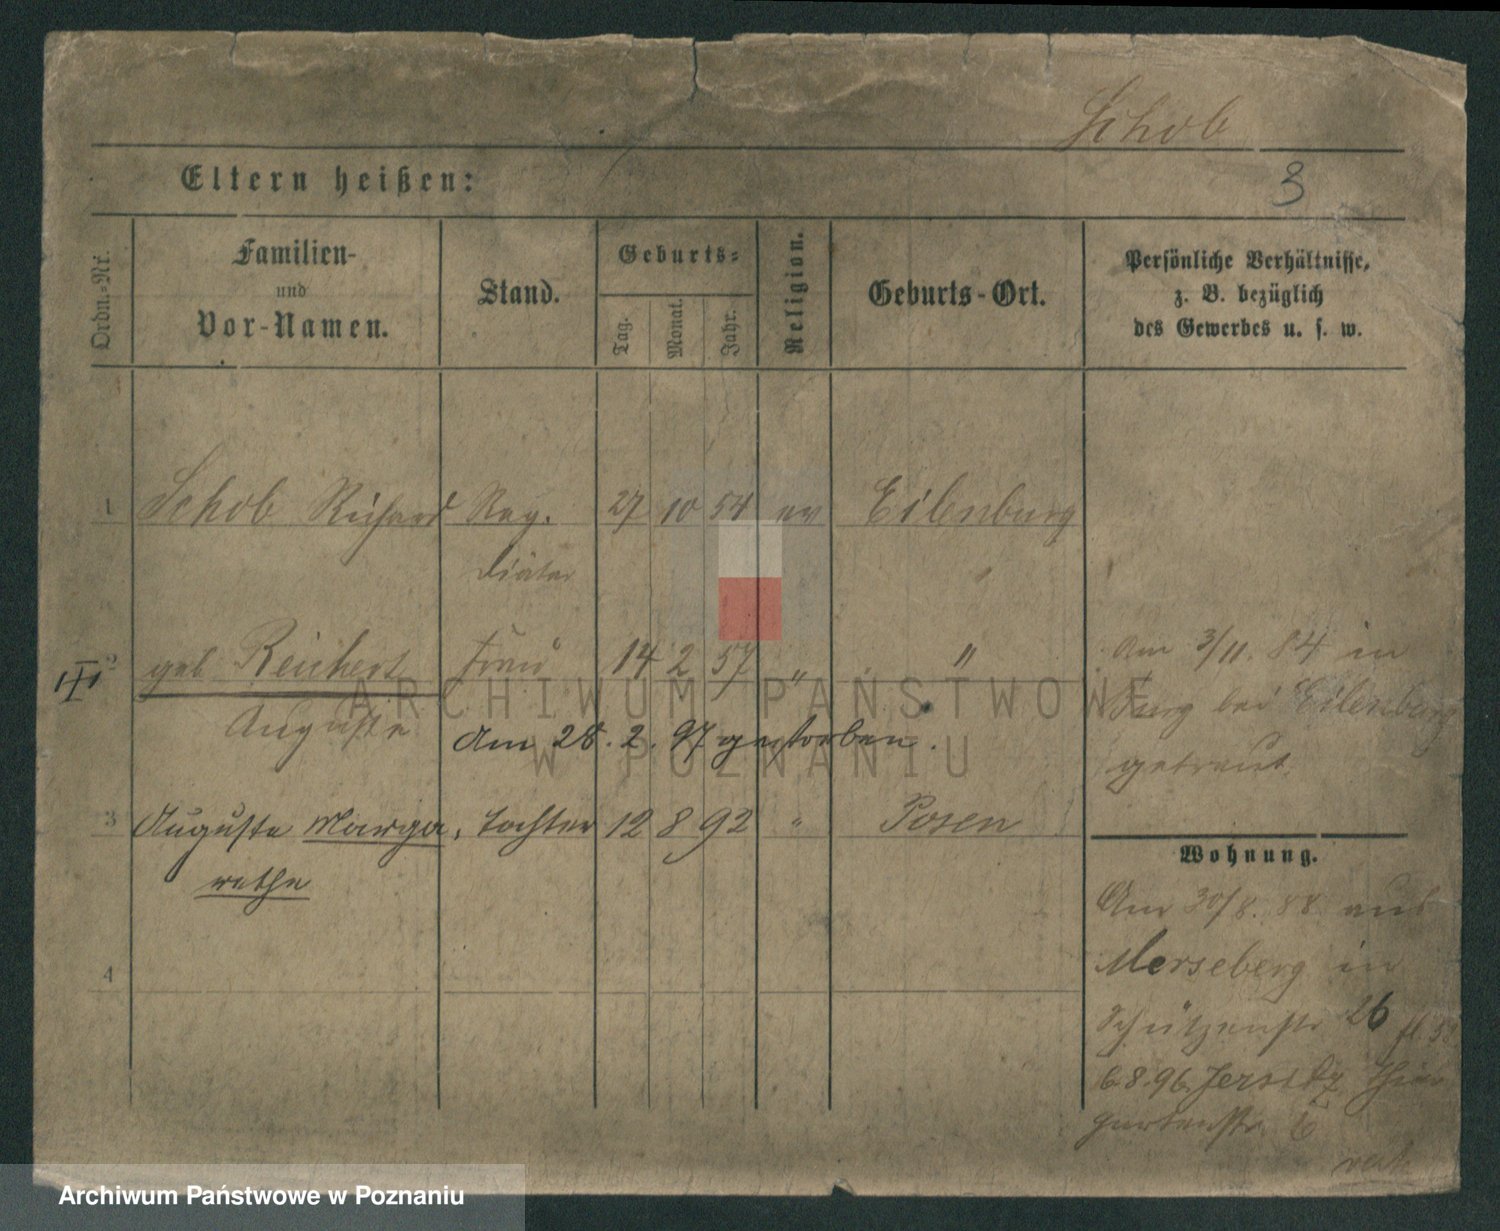 Schob
Eltern heißen:
3
Ordn.-Nr.
Familien-
und
Vor-Namen.
Stand.
Geburts-
Tag.
Monat.
Jahr.
Religion.
Geburts-Ort.
Persönliche Verhältnisse,
z. B. bezüglich
des Gewerbes u. s. w.
1 Schob Richard Reg. 27 10 54 ev Eilenburg
Diätar
2 geb Reichert Frau 14 2 57 " "
Auguste
Am 28. 2. 97 gestorben.
Am 3/11. 84 in
bei Eilenburg
getraut.
3 Auguste Marga, Tochter 12 8 92 " Posen
rethe
4
Wohnung.
Am 30/8. 88 aus
Merseberg in
Schützenstr 26
6.8.96 Jersitz Thier
gartenstr. 6
ARCHIWUM PAŃSTWOWE
W POZNANIU
Archiwum Państwowe w Poznaniu